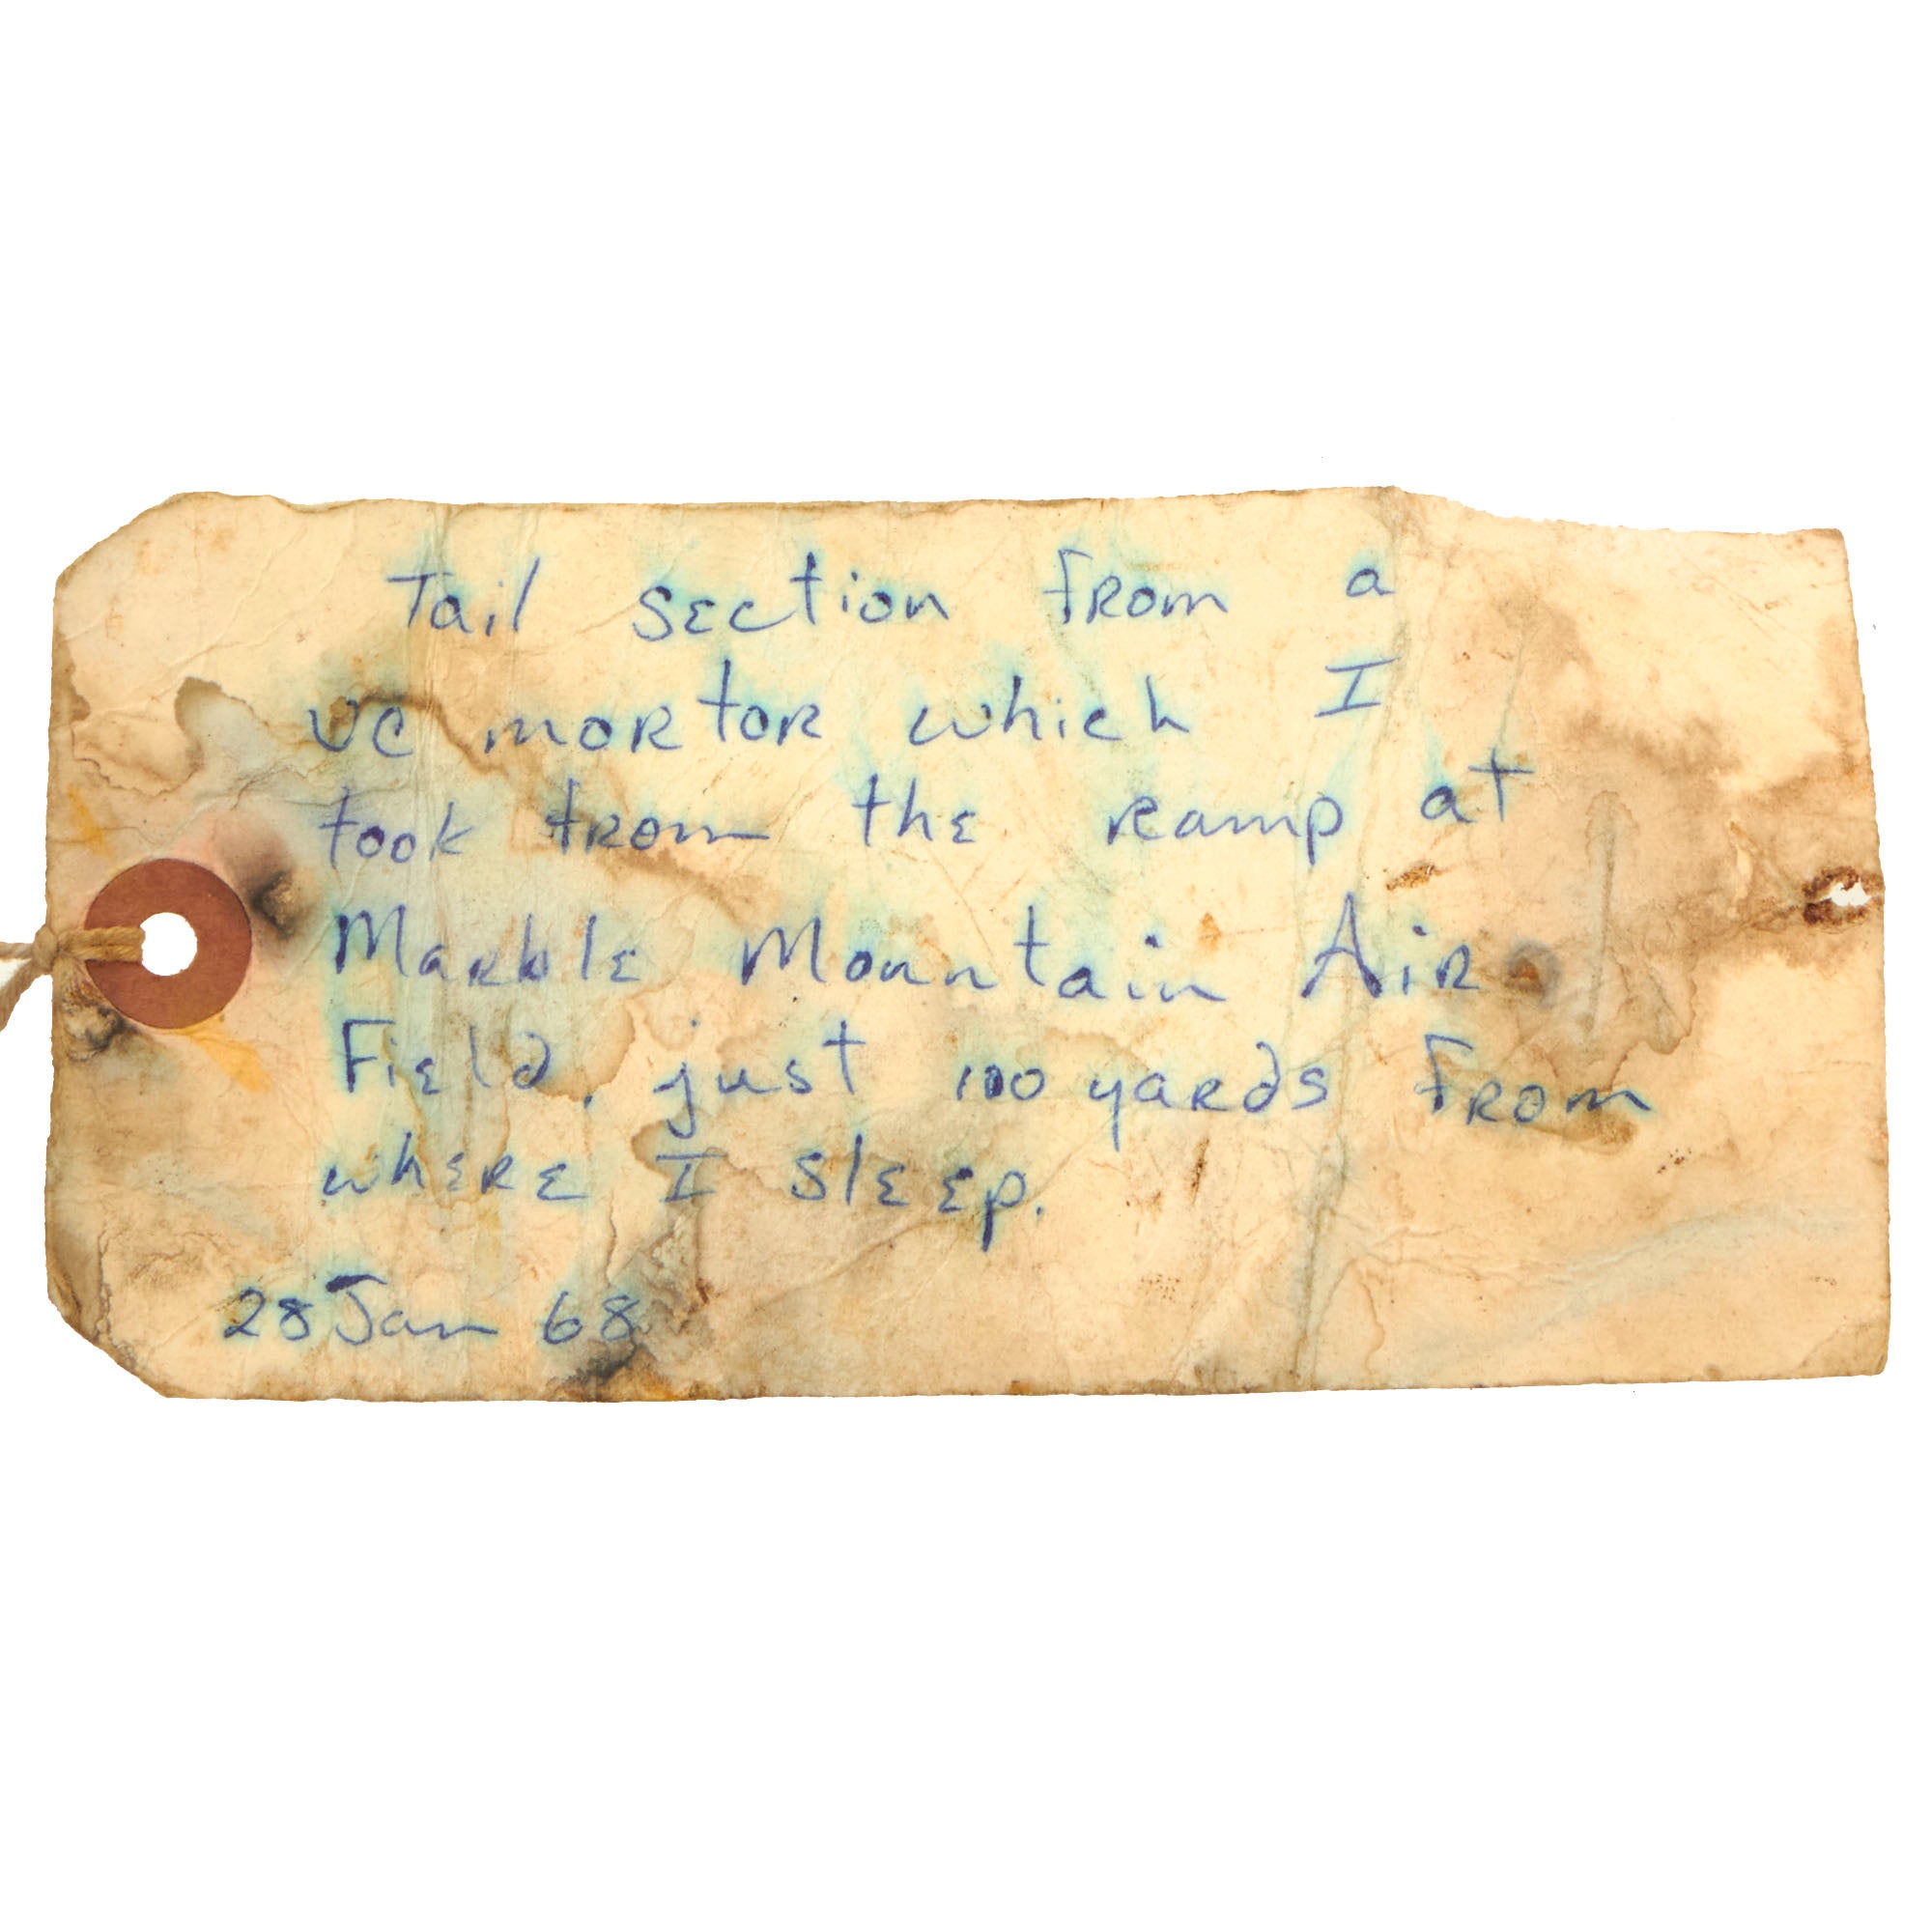 Tail section from a
VC mortor which I
took from the ramp at
Marble Mountain Air
Field, just 100 yards from
where I sleep.
28 Jan 68